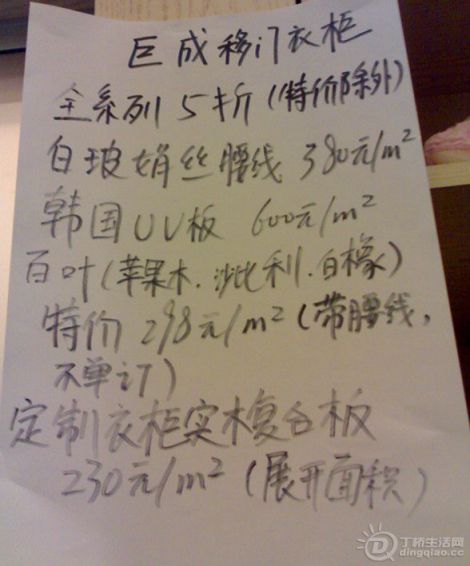 巨成移门衣柜
全系列5折(特价除外)
白玻娟丝腰线 380元/m²
韩国UV板 600元/m²
百叶(苹果木.沙比利.白橡)
特价298元/m²(带腰线,
不单订)
定制衣柜实木复合板
230元/m²(展开面积)
丁桥生活网
dingqiao.cc